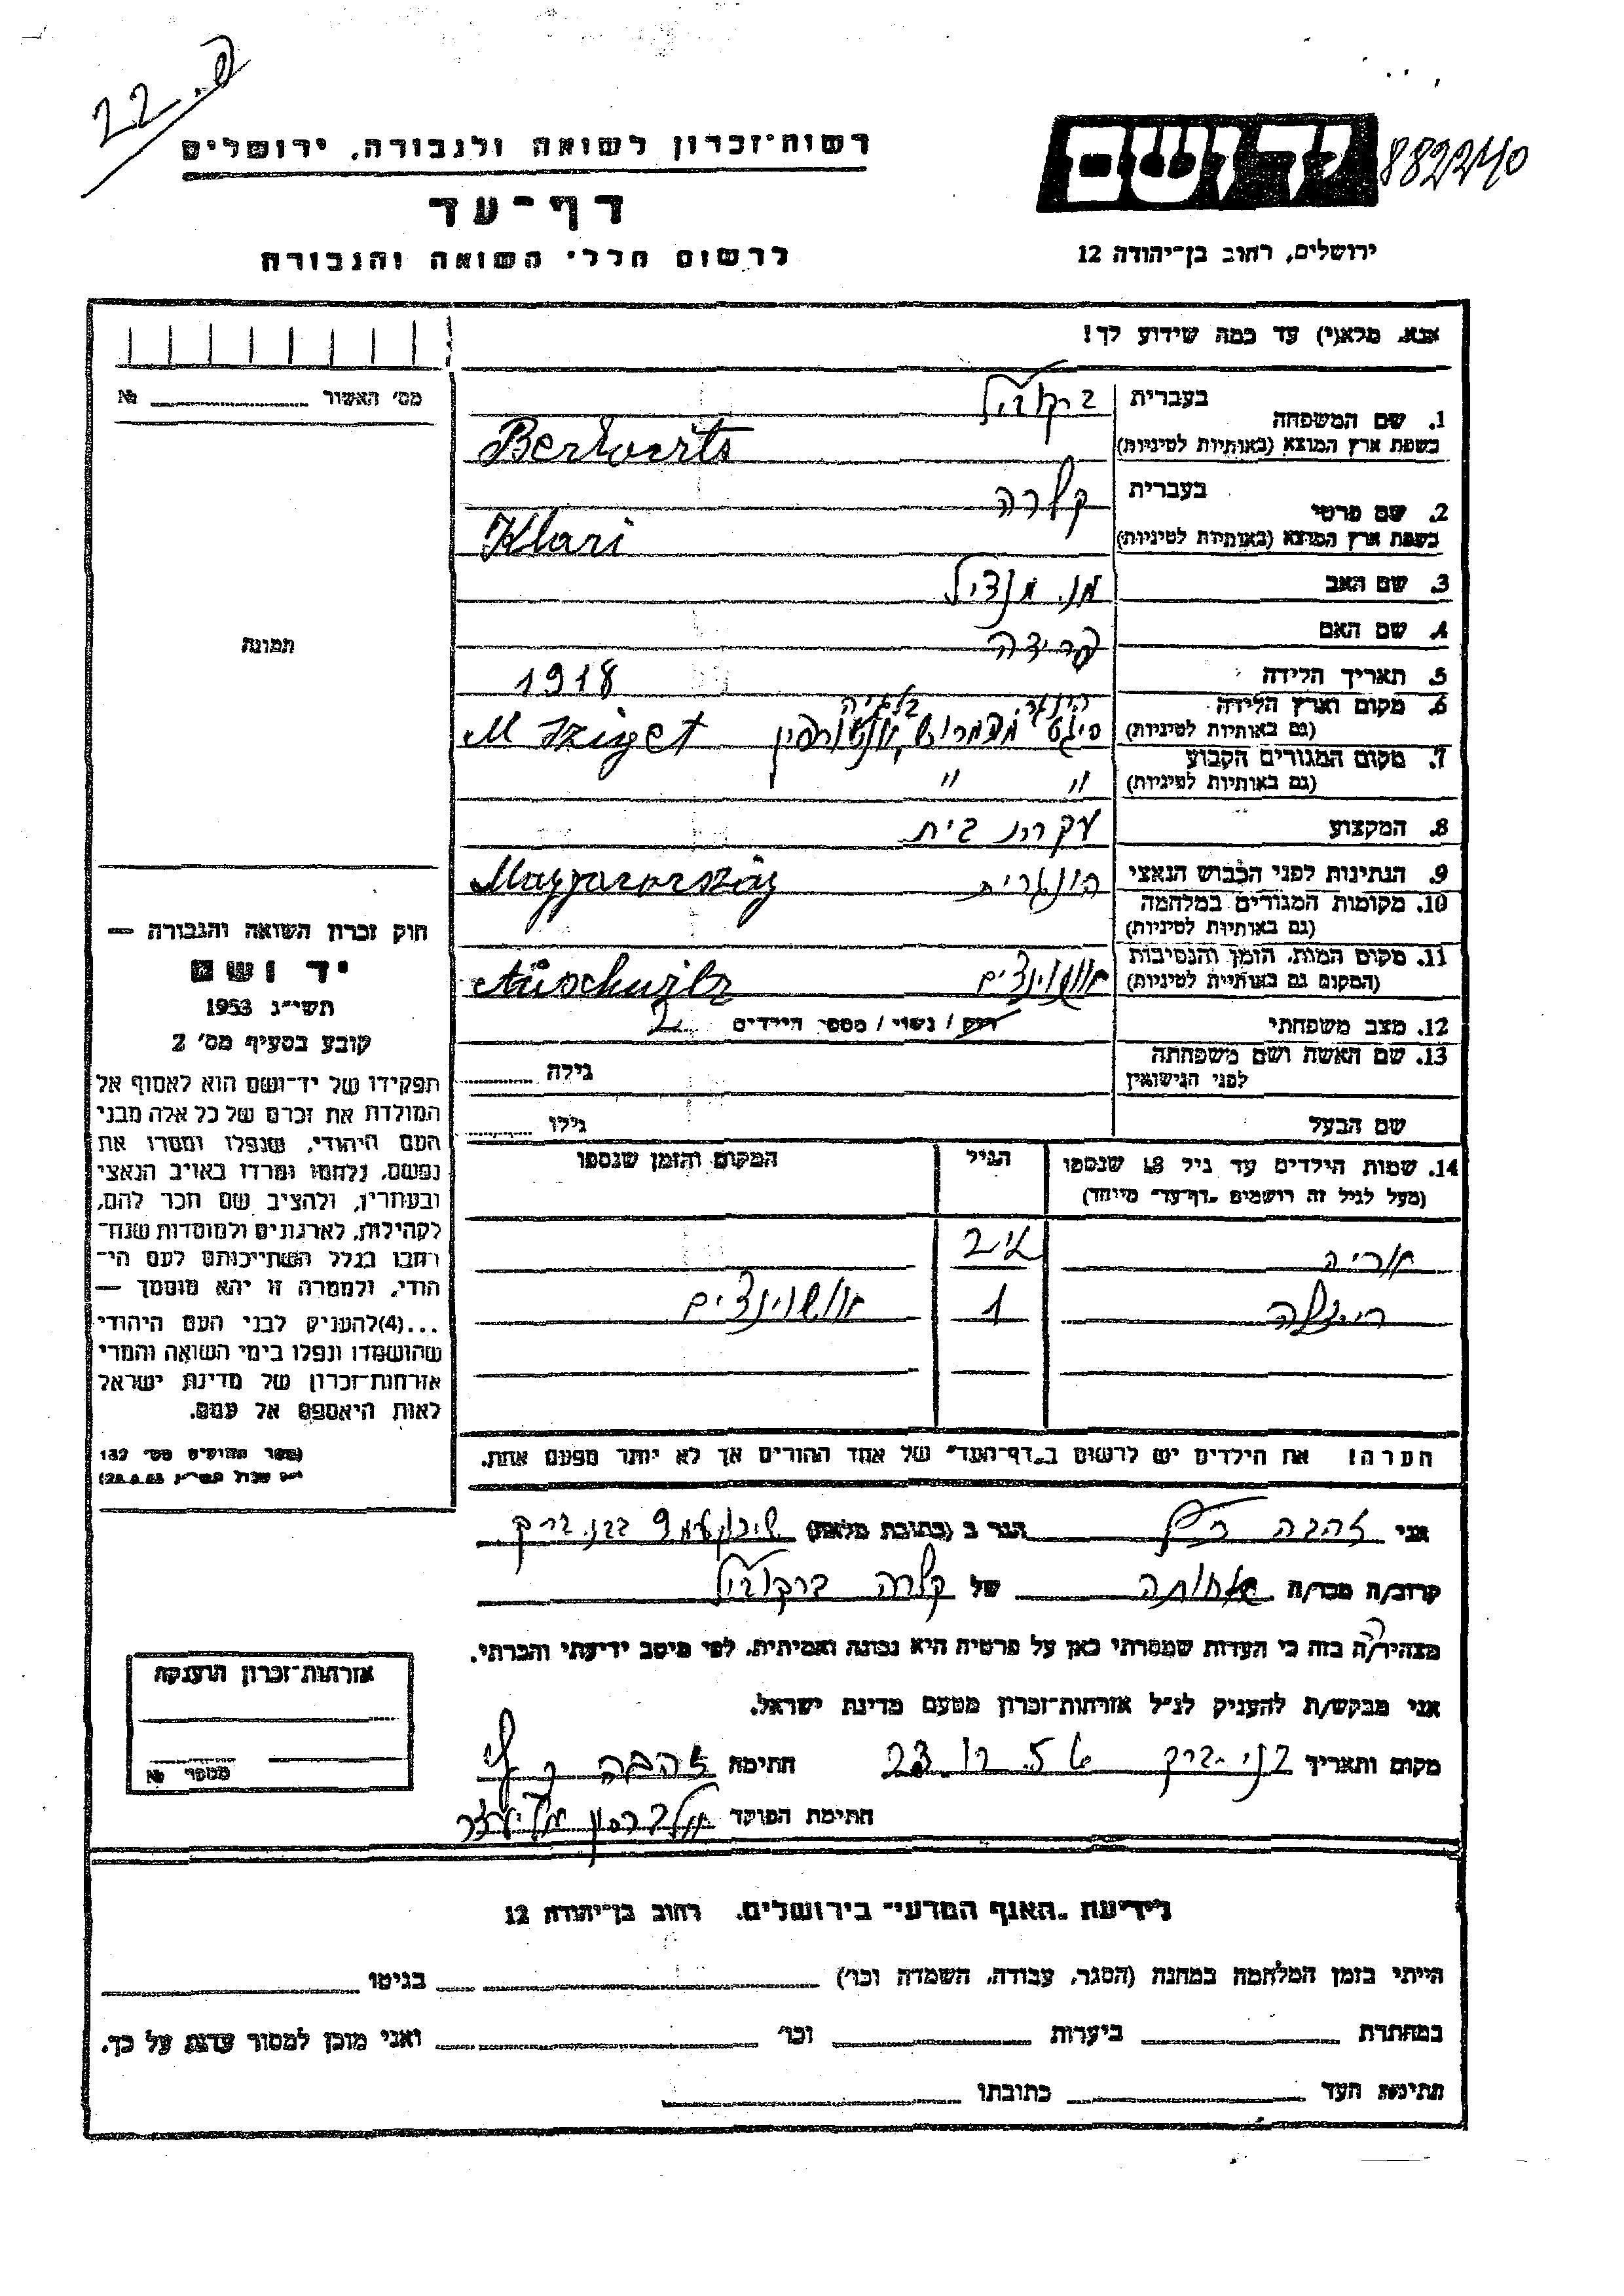 22.פ
רשות-זכרון לשואה ולגבורה, ירושלים
יד ושם
882240
דף-עד
לרשום חללי השואה והגבורה
ירושלים, רחוב בן-יהודה 12
אנא, מלא(י) עד כמה שידוע לך!
מס' האשור № 
1. שם המשפחה
בעברית
בשפת ארץ המוצא (באותיות לטיניות)
Berkovits
2. שם פרטי
בעברית קלרה
בשפת ארץ המוצא (באותיות לטיניות)
Klari
3. שם האב מנדיל
4. שם האם פרידה
5. תאריך הלידה 1918
6. מקום וארץ הלידה
(גם באותיות לטיניות)
M Sziget
7. מקום המגורים הקבוע
(גם באותיות לטיניות) " "
8. המקצוע עקרת בית
9. הנתינות לפני הכבוש הנאצי הונגרית Magyarország
10. מקומות המגורים במלחמה
(גם באותיות לטיניות)
11. מקום המות, הזמן והנסיבות
(המקום גם באותיות לטיניות) אושוינצים Auschwitz
12. מצב משפחתי רווק / נשוי / מספר הילדים 2
13. שם האשה ושם משפחתה
לפני הנישואין גילה
שם הבעל גילו
14. שמות הילדים עד גיל 18 שנספו
(מעל לגיל זה רושמים "דף-עד" מיוחד)
הגיל
המקום והזמן שנספו
אריה 2
1 אושוינצים
הערה! את הילדים יש לרשום ב"דף-העד" של אחד ההורים אך לא יותר מפעם אחת.
תמונה
חוק זכרון השואה והגבורה —
יד ושם
תשי"ג 1953
קובע בסעיף מס' 2
תפקידו של יד-ושם הוא לאסוף אל
המולדת את זכרם של כל אלה מבני
העם היהודי, שנפלו ומסרו את
נפשם, נלחמו ומרדו באויב הנאצי
ובעוזריו, ולהציב שם וזכר להם,
לקהילות, לארגונים ולמוסדות שנח-
רבו בגלל השתייכותם לעם הי-
הודי, ולמטרה זו יהא מוסמך —
...(4)להעניק לבני העם היהודי
שהושמדו ונפלו בימי השואה והמרי
אזרחות-זכרון של מדינת ישראל
לאות היאספם אל עמם.
(ספר החוקים מס' 132
אני זהבה הגר ב (כתובת מלאה) בני ברק
קרוב/ה מכר/ה אחותה של קלרה
מצהיר/ה בזה כי העדות שמסרתי כאן על פרטיה היא נכונה ואמיתית, לפי מיטב ידיעתי והכרתי.
אני מבקש/ת להעניק לנ"ל אזרחות-זכרון מטעם מדינת ישראל.
מקום ותאריך בני-ברק 23. 11. 56 חתימה זהבה
חתימת הפוקד
אזרחות-זכרון הוענקה
מספר №
לידיעת "האגף המדעי" בירושלים, רחוב בן-יהודה 12
הייתי בזמן המלחמה במחנה (הסגר, עבודה, השמדה וכו') בגיטו
במחתרת ביערות וכו' ואני מוכן למסור עדות על כך.
חתימת העד כתובתו